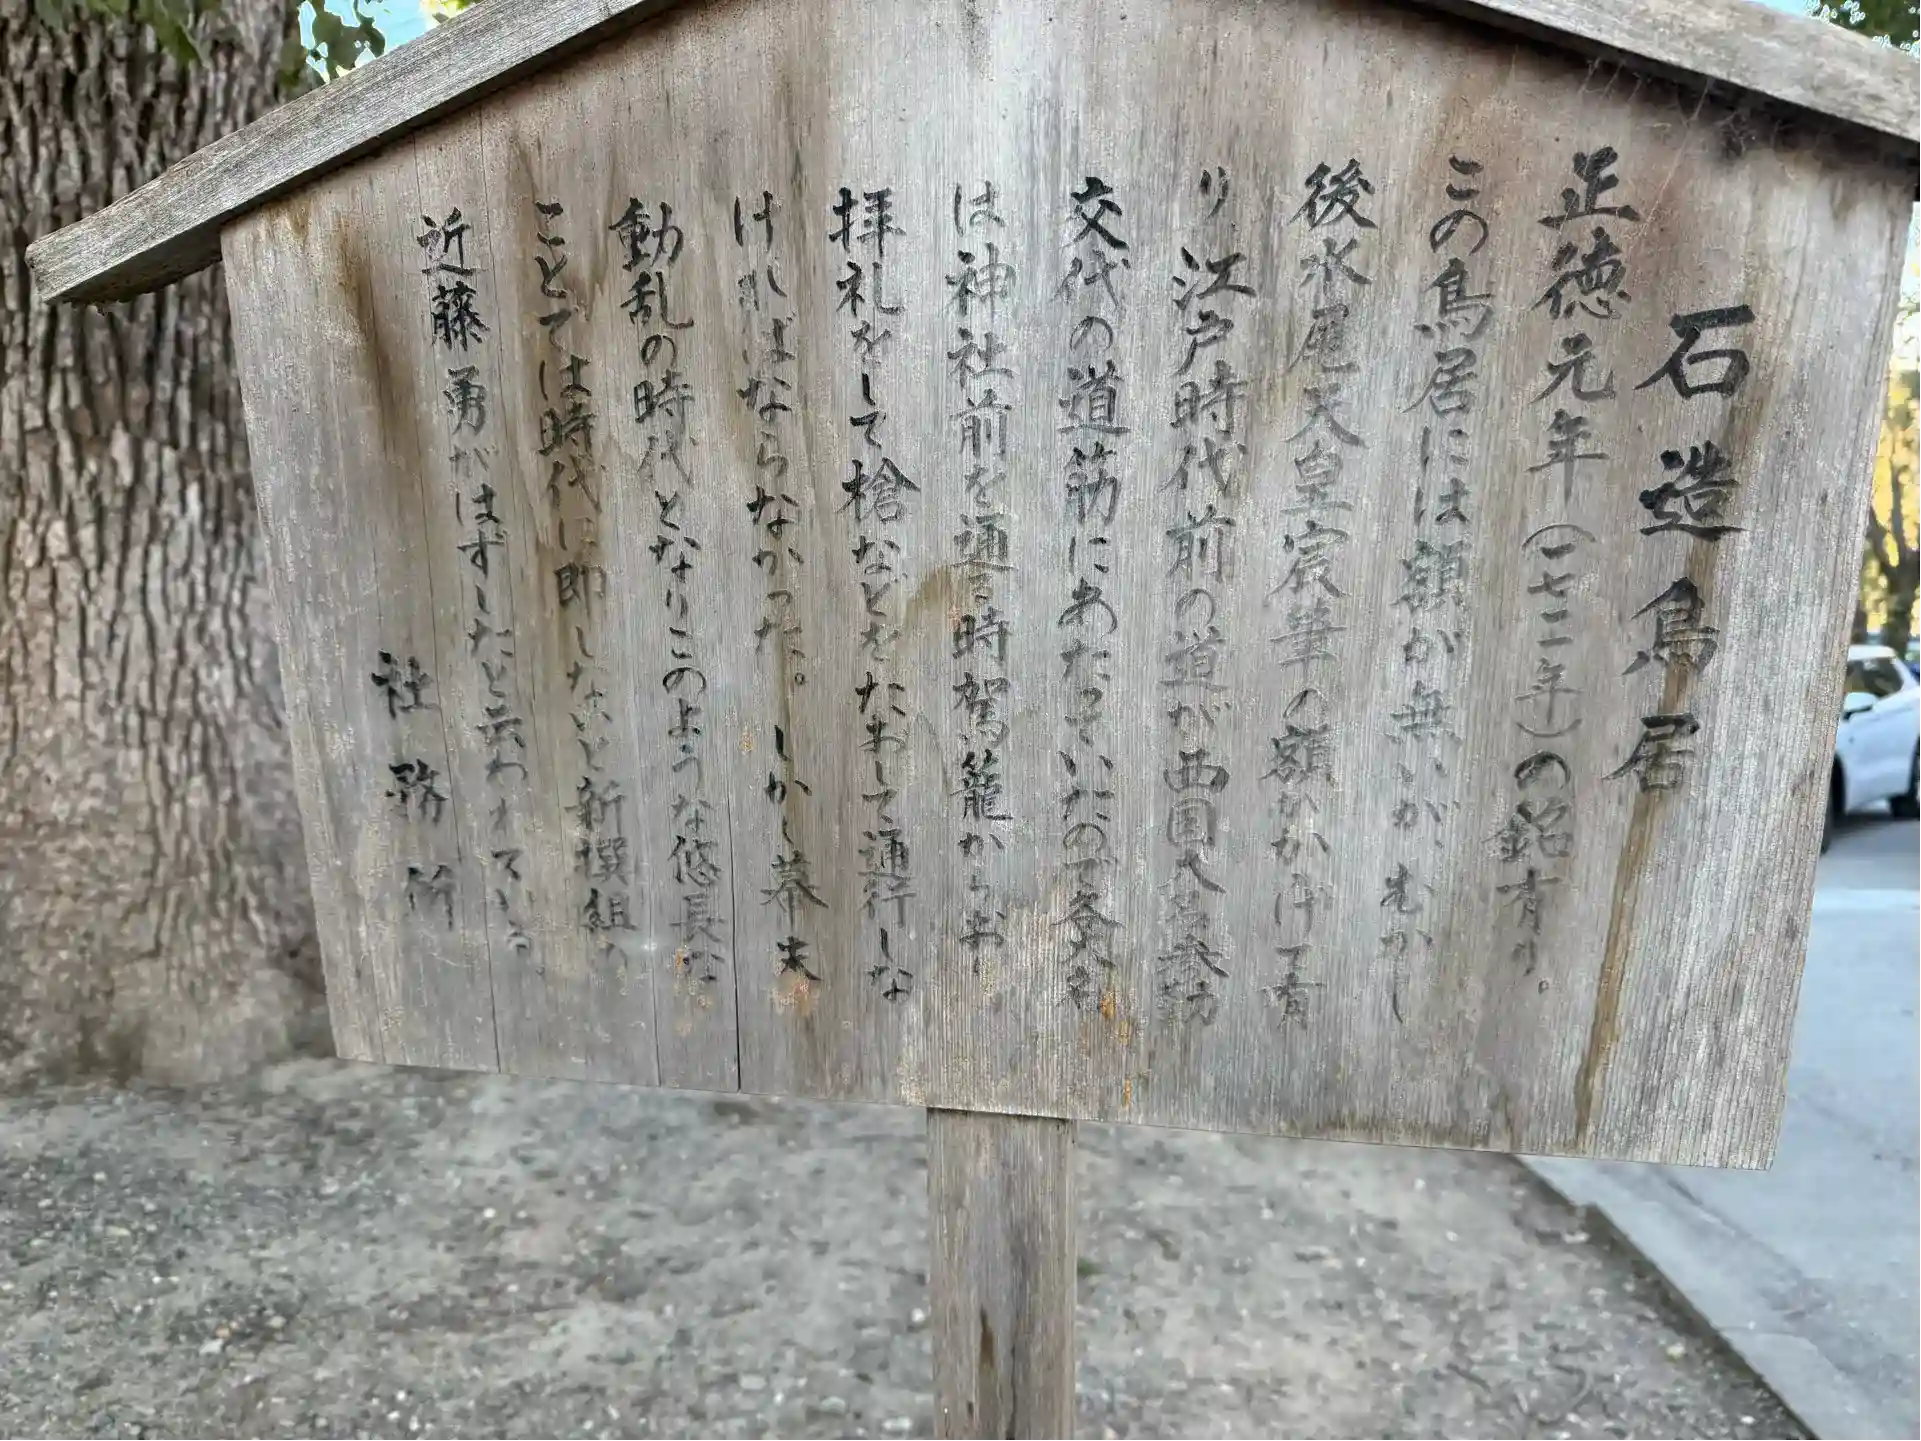 石造鳥居
正徳元年(一七一一年)の銘有り。
この鳥居には額が無いが、むかし
後水尾天皇宸筆の額がかげて有
り江戸時代前の道が西国大名参勤
交代の道筋にあたっていたので各大名
は神社前を通る時駕籠からおり
拝礼をして槍などをなおして通行しな
ければならなかった。しかし幕末
動乱の時代となりこのような悠長な
ことでは時代に即しないと新撰組の
近藤勇がはずしたと云われている
社務所